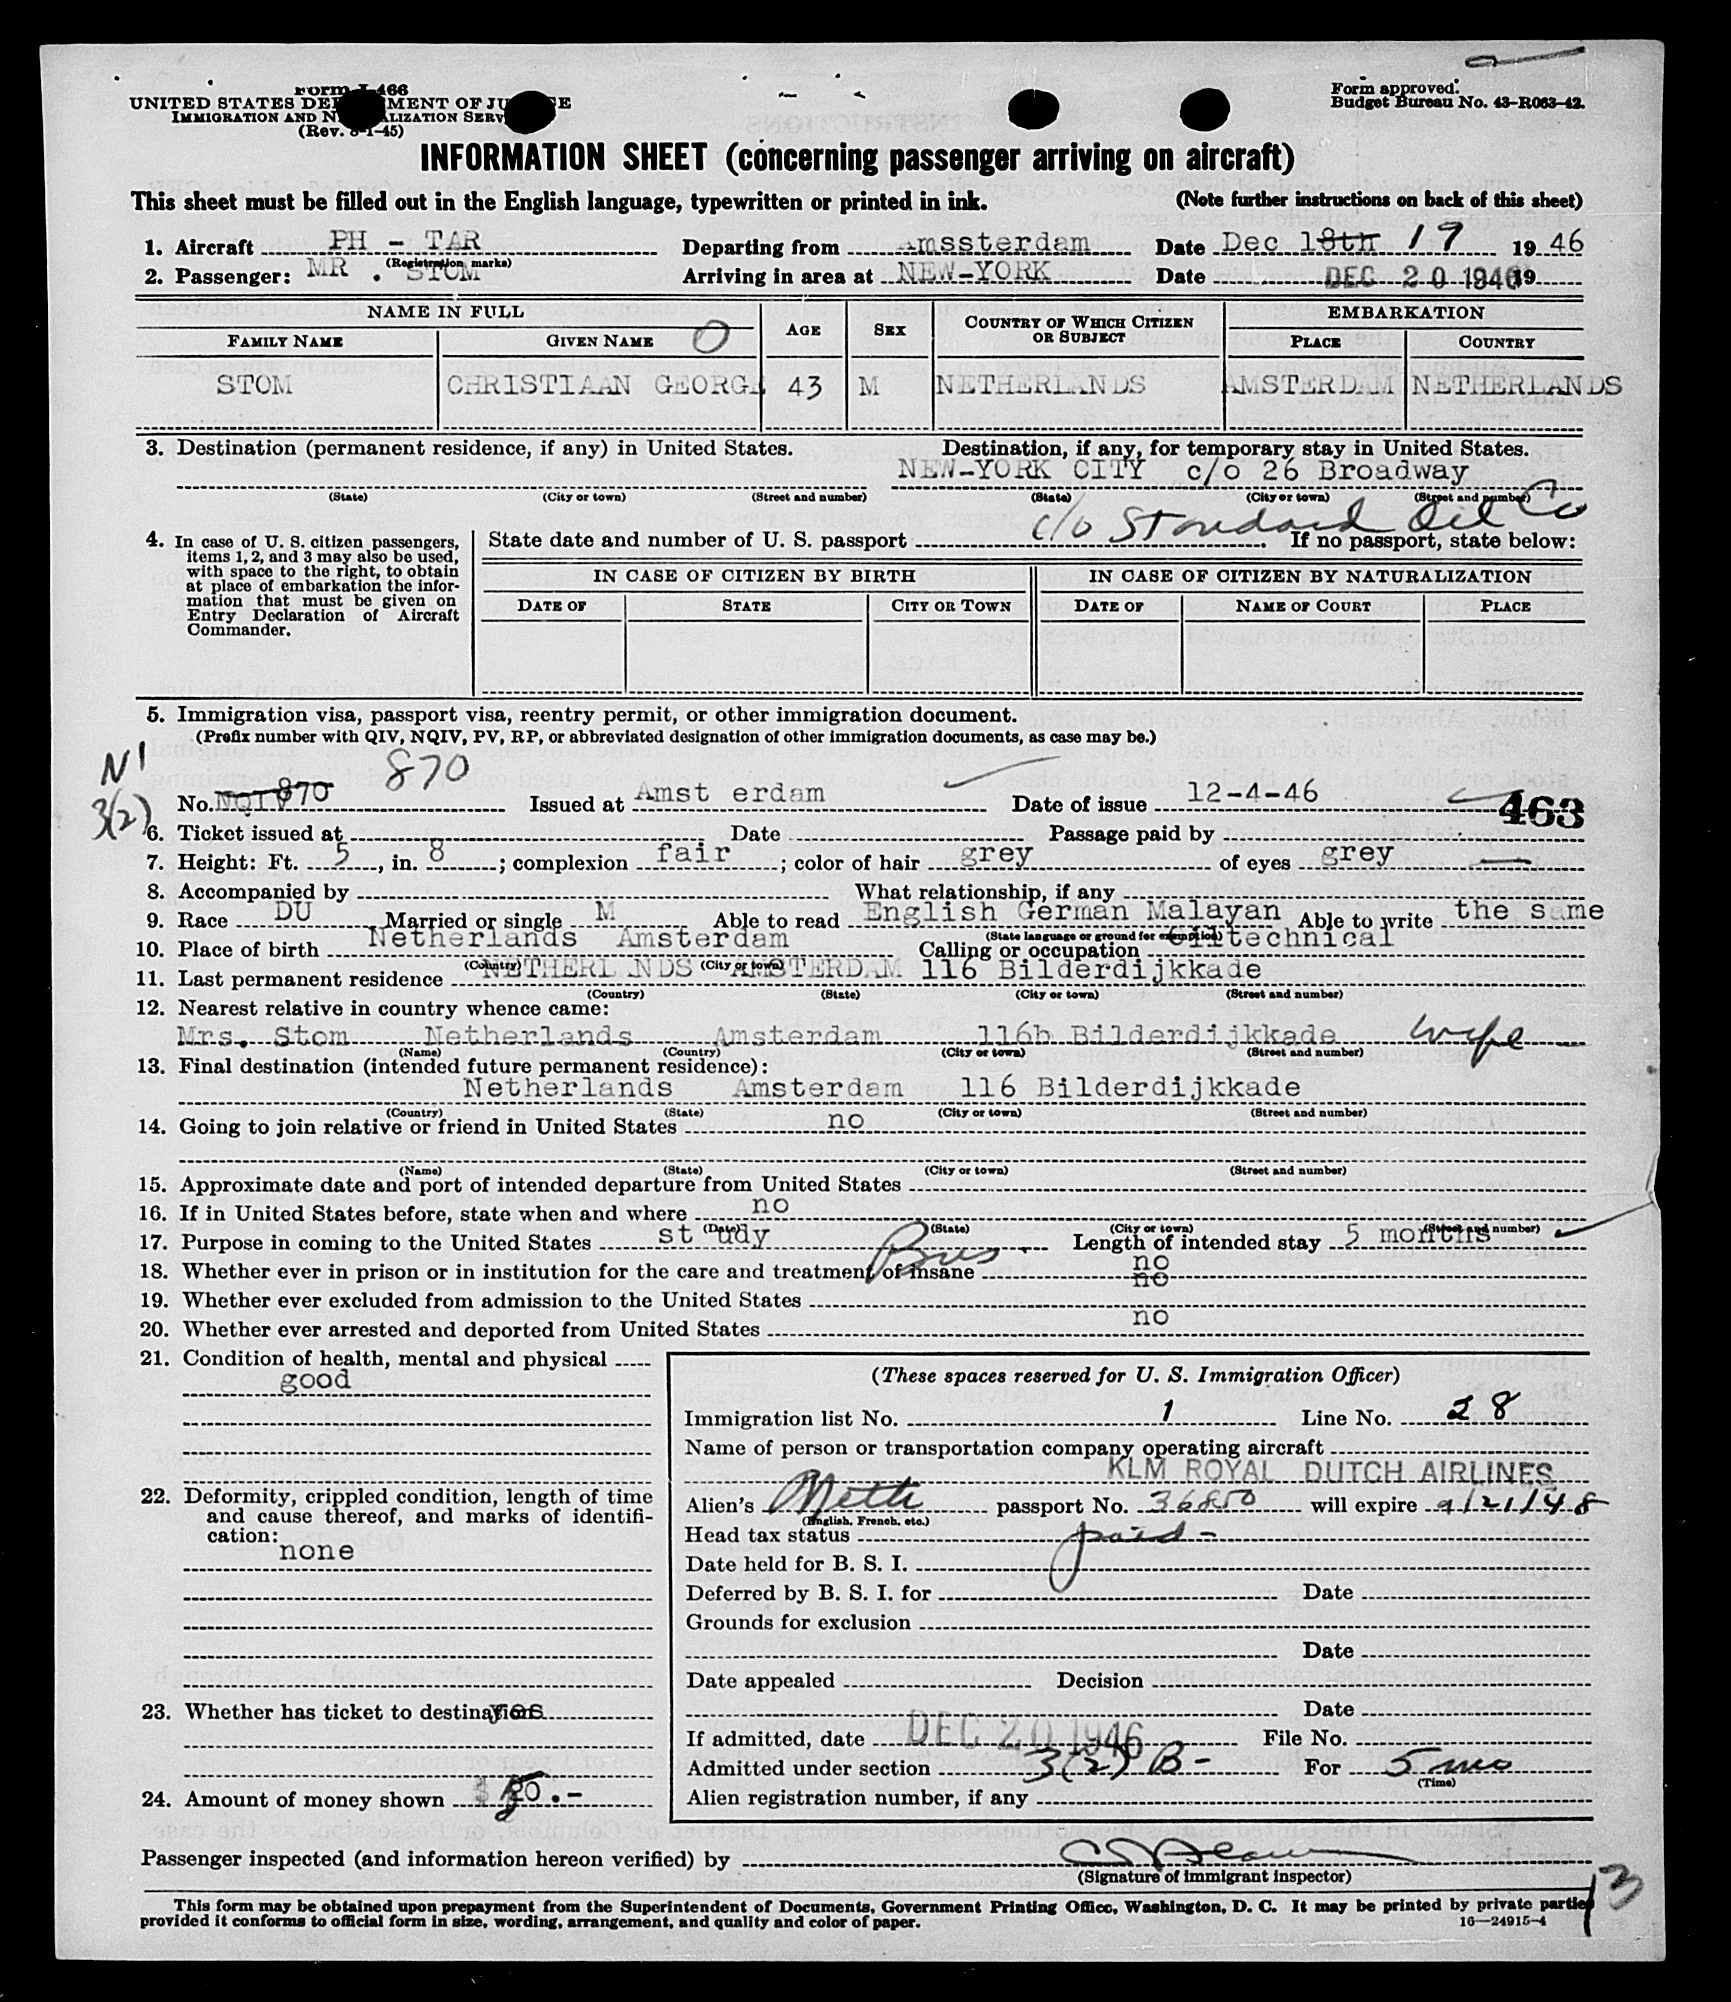 Form I-466
UNITED STATES DEPARTMENT OF JUSTICE
IMMIGRATION AND NATURALIZATION SERV
(Rev. 8-1-45)
Form approved.
Budget Bureau No. 43-R063-42.
INFORMATION SHEET (concerning passenger arriving on aircraft)
This sheet must be filled out in the English language, typewritten or printed in ink. (Note further instructions on back of this sheet)
1. Aircraft PH - TAR Departing from Amssterdam Date Dec 18th 19 19 46
(Registration marks)
2. Passenger: MR . STOM Arriving in area at NEW-YORK Date DEC 20 1946 19
NAME IN FULL AGE SEX COUNTRY OF WHICH CITIZEN OR SUBJECT EMBARKATION
FAMILY NAME GIVEN NAME O PLACE COUNTRY
STOM CHRISTIAAN GEORGA 43 M NETHERLANDS AMSTERDAM NETHERLANDS
3. Destination (permanent residence, if any) in United States. Destination, if any, for temporary stay in United States.
NEW-YORK CITY c/o 26 Broadway
(State) (City or town) (Street and number) (State) (City or town) (Street and number)
c/o Standard Oil Co
4. In case of U. S. citizen passengers, items 1, 2, and 3 may also be used, with space to the right, to obtain at place of embarkation the information that must be given on Entry Declaration of Aircraft Commander.
State date and number of U. S. passport If no passport, state below:
IN CASE OF CITIZEN BY BIRTH IN CASE OF CITIZEN BY NATURALIZATION
DATE OF STATE CITY OR TOWN DATE OF NAME OF COURT PLACE
5. Immigration visa, passport visa, reentry permit, or other immigration document.
(Prefix number with QIV, NQIV, PV, RP, or abbreviated designation of other immigration documents, as case may be.)
N1
3(2)
870
No. NQIV 870 Issued at Amst erdam Date of issue 12-4-46
463
6. Ticket issued at Date Passage paid by
7. Height: Ft. 5, in. 8; complexion fair; color of hair grey of eyes grey
8. Accompanied by What relationship, if any
9. Race DU Married or single M Able to read English German Malayan Able to write the same
(State language or ground for exemption)
10. Place of birth Netherlands Amsterdam Calling or occupation Oiltechnical
(Country) (City or town)
11. Last permanent residence NETHERLANDS AMSTERDAM 116 Bilderdijkkade
(Country) (State) (City or town) (Street and number)
12. Nearest relative in country whence came:
Mrs. Stom Netherlands Amsterdam 116b Bilderdijkkade wife
(Name) (Country) (City or town) (Street and number)
13. Final destination (intended future permanent residence):
Netherlands Amsterdam 116 Bilderdijkkade
(Country) (State) (City or town) (Street and number)
14. Going to join relative or friend in United States no
(Name) (State) (City or town) (Street and number)
15. Approximate date and port of intended departure from United States
16. If in United States before, state when and where no
(Date) (State) (City or town) (Street and number)
17. Purpose in coming to the United States st udy Bus. Length of intended stay 5 months
18. Whether ever in prison or in institution for the care and treatment of insane no
no
19. Whether ever excluded from admission to the United States
20. Whether ever arrested and deported from United States no
21. Condition of health, mental and physical
good
22. Deformity, crippled condition, length of time and cause thereof, and marks of identification:
none
23. Whether has ticket to destination yes
24. Amount of money shown
(These spaces reserved for U. S. Immigration Officer)
Immigration list No. 1 Line No. 28
Name of person or transportation company operating aircraft
KLM ROYAL DUTCH AIRLINES
Alien's Neth passport No. 36850 will expire 9/21/48
(English, French, etc.)
Head tax status paid -
Date held for B. S. I.
Deferred by B. S. I. for Date
Grounds for exclusion
Date
Date appealed Decision
Date
If admitted, date DEC 20 1946 File No.
Admitted under section 3(2) B - For 5 mo
(Time)
Alien registration number, if any
Passenger inspected (and information hereon verified) by
(Signature of immigrant inspector)
13
This form may be obtained upon prepayment from the Superintendent of Documents, Government Printing Office, Washington, D. C. It may be printed by private parties
provided it conforms to official form in size, wording, arrangement, and quality and color of paper. 16—24915-4